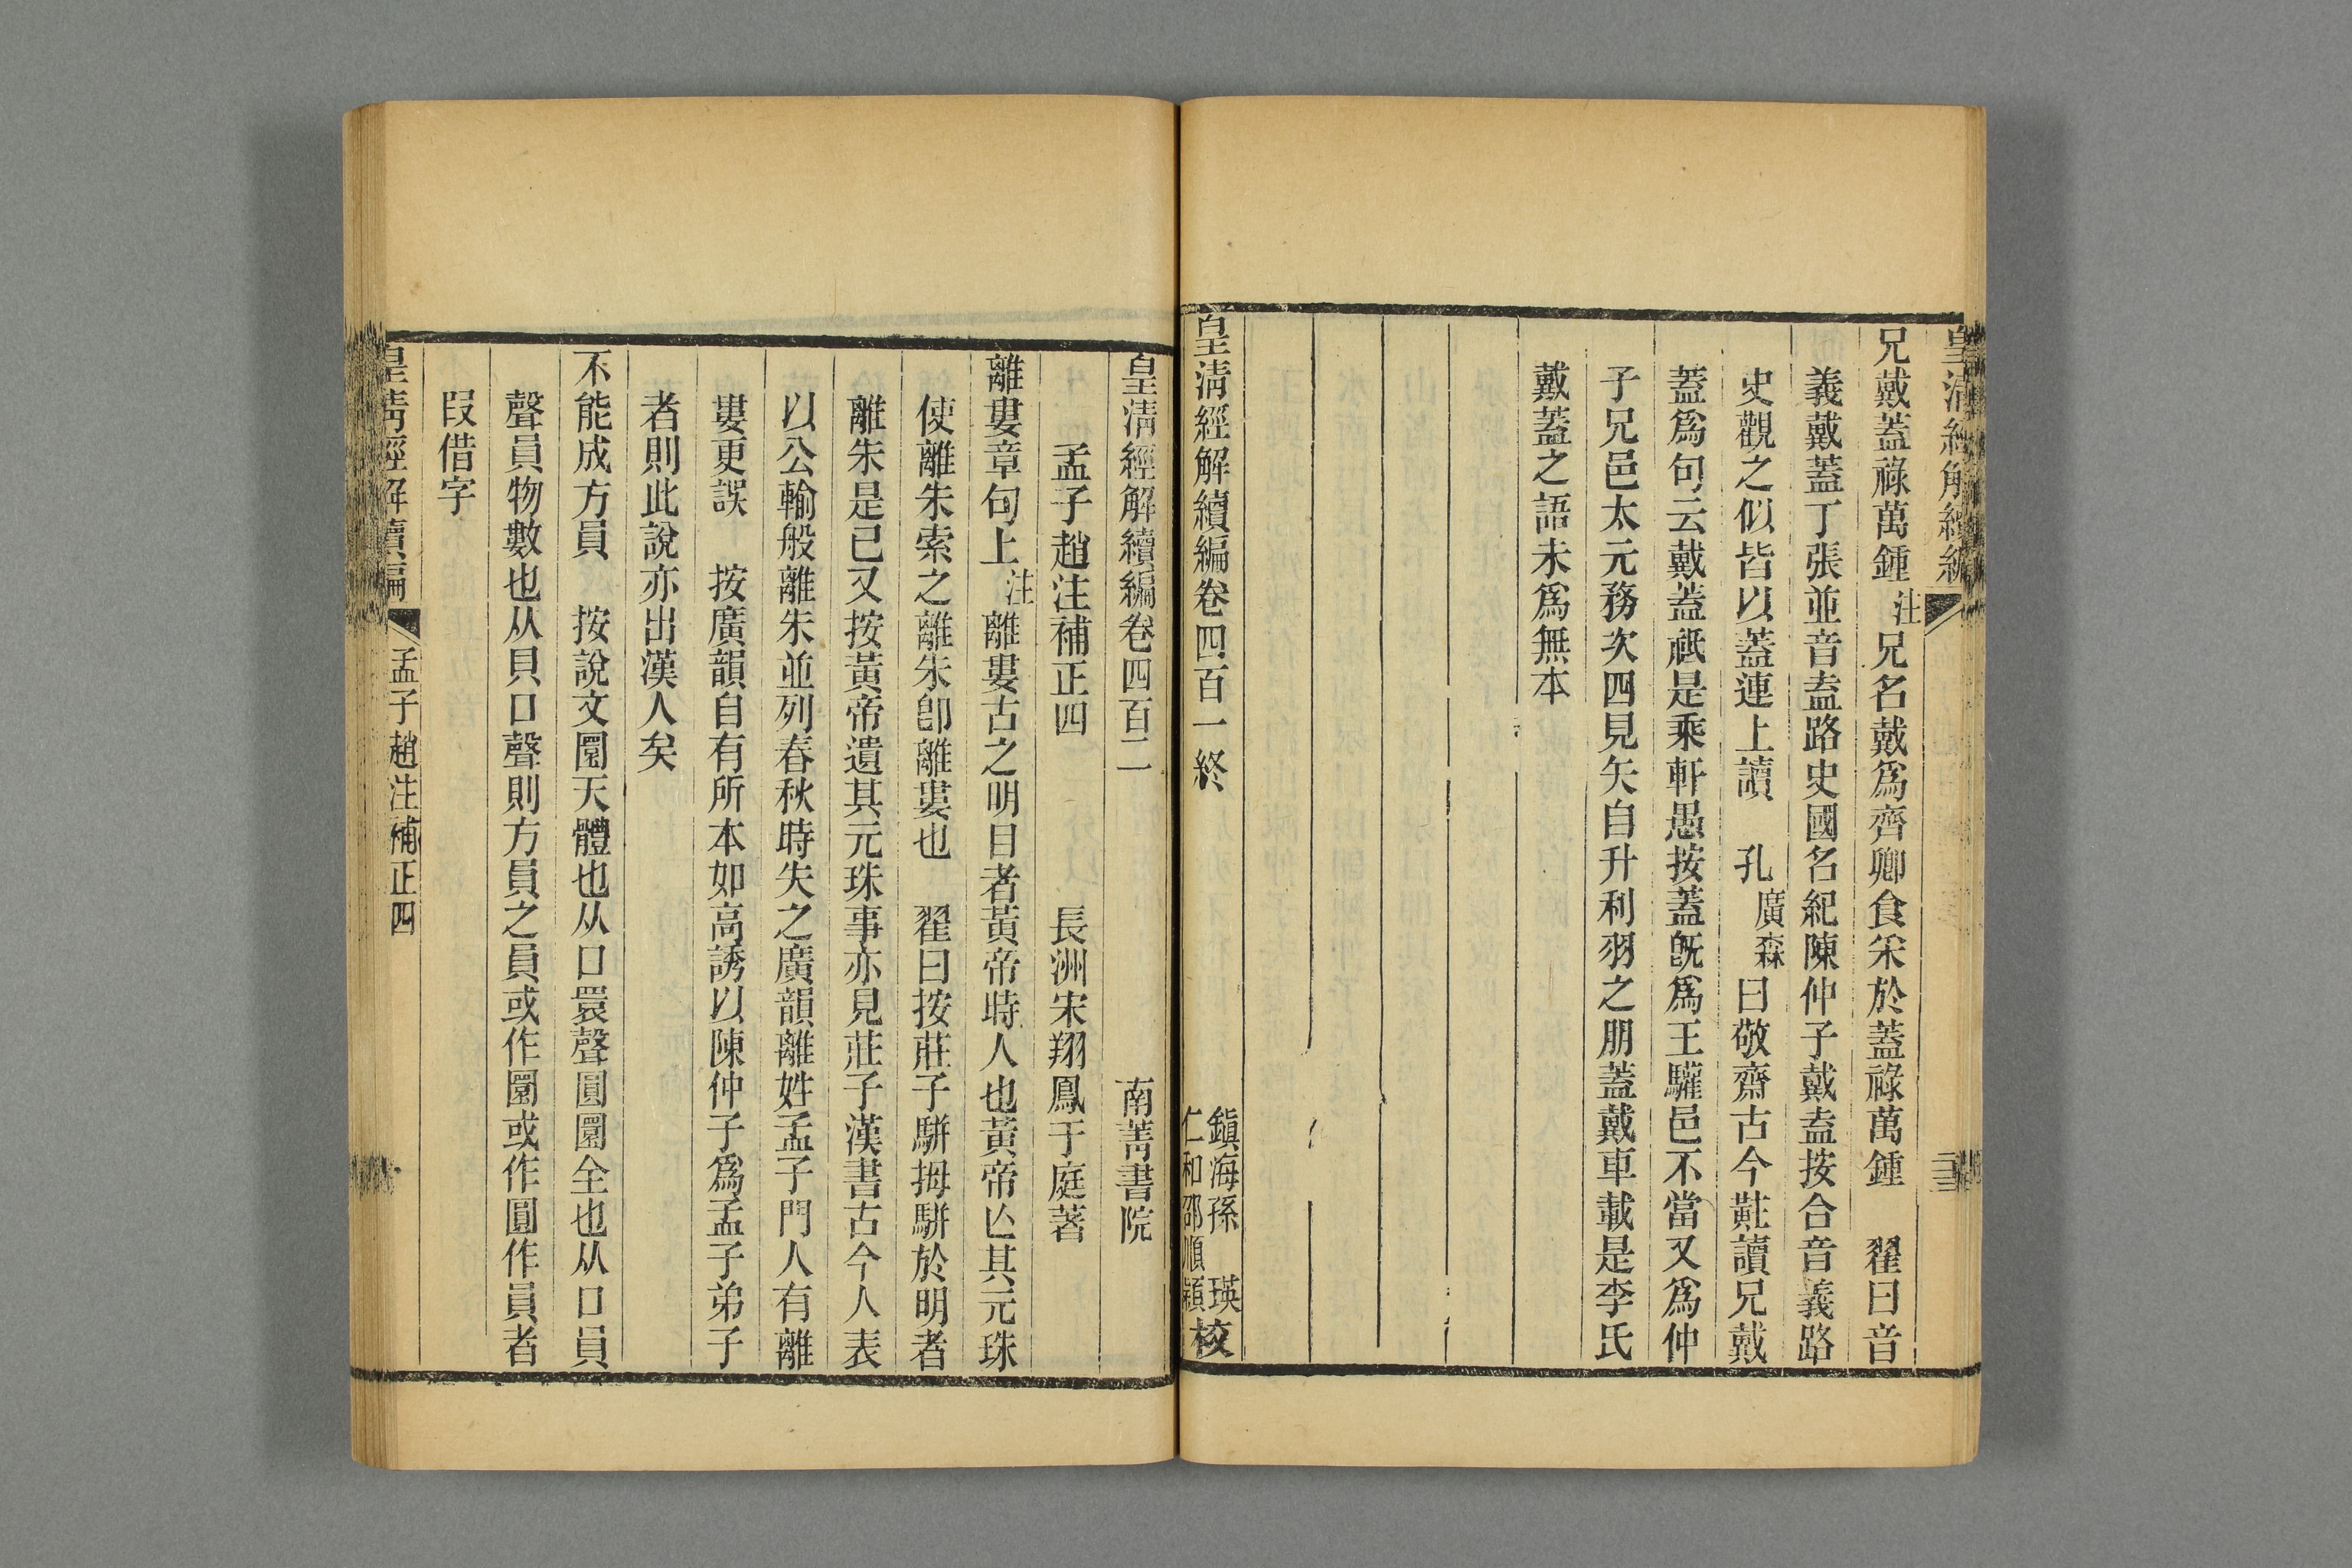 皇清經解續編
三
兄戴蓋祿萬鍾注兄名戴爲齊卿食采於蓋祿萬鍾 翟曰音
義戴蓋丁張並音盍路史國名紀陳仲子戴盍按合音義路
史觀之似皆以蓋連上讀 孔廣森曰敬齋古今黈讀兄戴
蓋爲句云戴蓋祇是乘軒愚按蓋旣爲王驩邑不當又爲仲
子兄邑太元務次四見矢自升利羽之朋蓋戴車載是李氏
戴蓋之語未爲無本
皇清經解續編卷四百一終
鎭海孫 瑛
仁和邵順顥
校
皇清經解續編卷四百二 南菁書院
孟子趙注補正四 長洲宋翔鳳于庭著
離婁章句上注離婁古之明目者黃帝時人也黃帝亾其元珠
使離朱索之離朱卽離婁也 翟曰按莊子駢拇駢於明者
離朱是已又按黃帝遺其元珠事亦見莊子漢書古今人表
以公輸般離朱並列春秋時失之廣韻離姓孟子門人有離
婁更誤 按廣韻自有所本如高誘以陳仲子爲孟子弟子
者則此說亦出漢人矣
不能成方員 按說文圜天體也从囗睘聲圓圜全也从囗員
聲員物數也从貝囗聲則方員之員或作圜或作圓作員者
叚借字
皇清經解續編 孟子趙注補正四